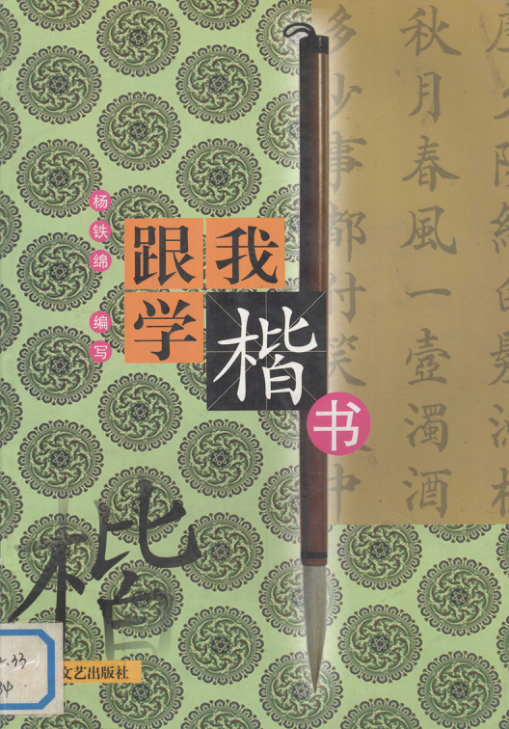 跟我学楷书
杨铁绵 编写
楷
文艺出版社
秋月春風一壺濁酒
多少事都付笑中
.33
34